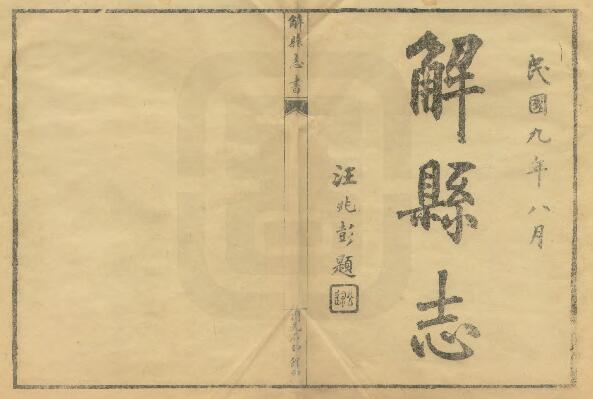 民國九年八月
解縣志
汪兆彭題
解縣志書